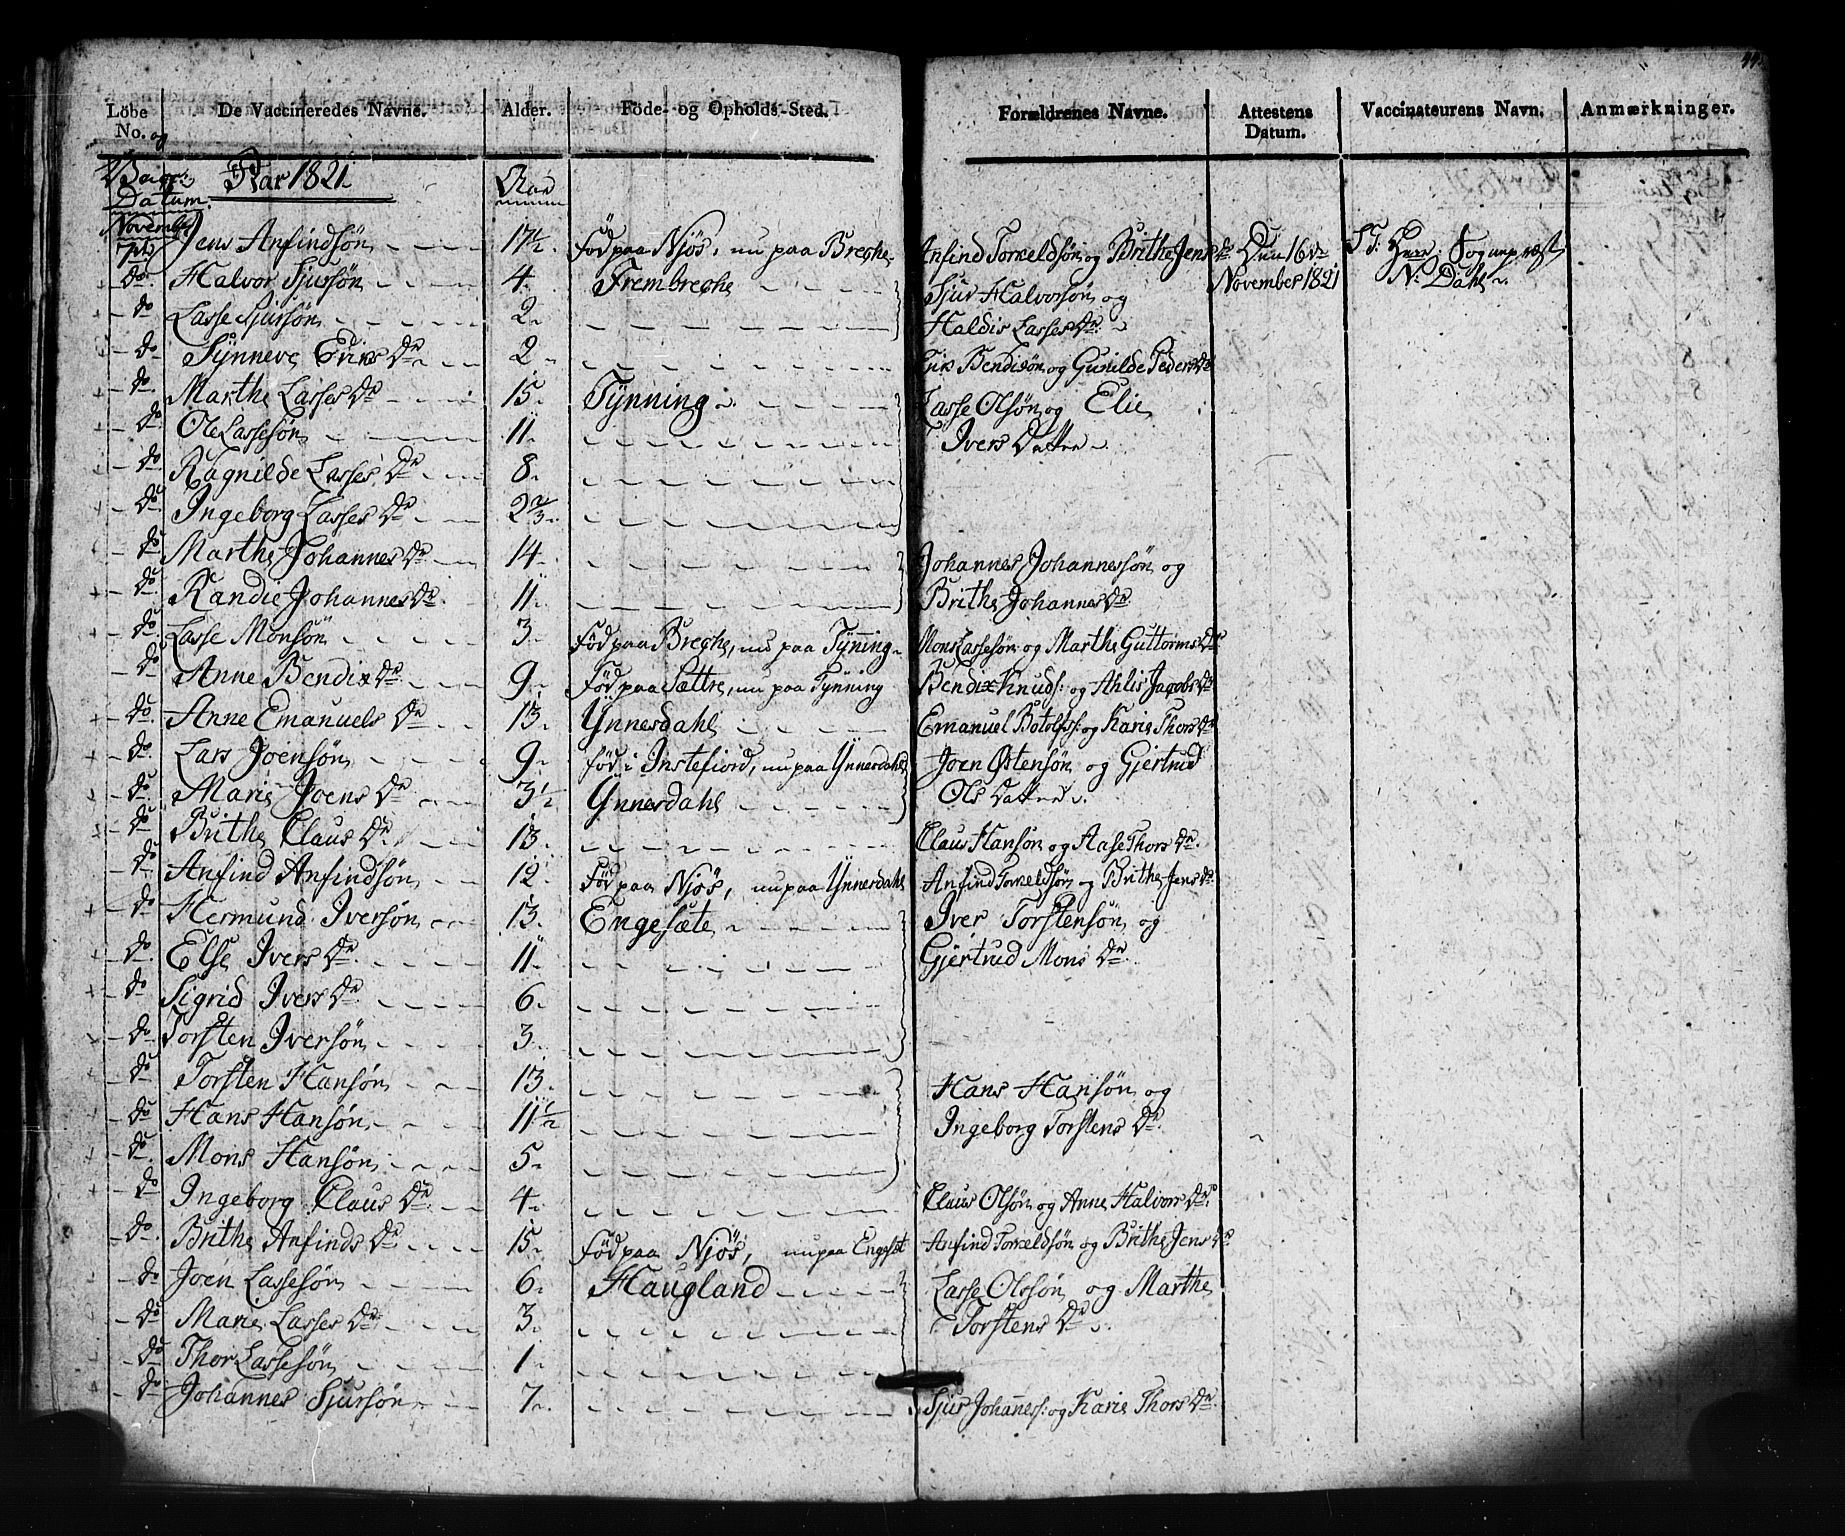 44.
Löbe No. og Vacc: Datum. | De Vaccineredes Navne. | Alder. | Föde- og Opholds-Sted. | Forældrenes Navne. | Attestens Datum. | Vaccinateurens Navn. | Anmærkninger.
Aar 1821. | Aar
November 7de | Jens Anfindsön | 17 1/2 | Född paa Njös, nu paa Breche | Anfind Torkeldsön og Brithe Jens Dr | Den 16de November 1821 | S. T. Herr Sognepræst N: Dahl
do. | Halvor Sjursön | 4. | Frembreche | Sjur Halvorsön og
do | Lasse Sjursön | 2. | | Haldis Lasses Dr.
do | Synneve Erics Dr | 2. | | Eric Bendixön og Gunilde Peders Dr
do. | Marthe Lasses Dr | 15. | Tynning | Lasse Olsön og Elie
do | Ole Lassesön | 11. | | Ivers Datter
do | Ragnilde Lasses Dr | 8.
do. | Ingeborg Lasses Dr | 2 2/3
do | Marthe Johannes Dr | 14. | | Johannes Johannessön og
do | Randie Johannes Dr. | 11. | | Brithe Johannes Dr
do | Lasse Monsön | 3. | Född paa Breche, nu paa Tynning | Mons Lassesön og Marthe Guttorms Dr
do | Anne Bendix Dr. | 9. | Född paa Sættre, nu paa Tynning | Bendix Knuds: og Ahlis Jacobs Dr
do | Anne Emanuels Dr | 13. | Ynnesdahl | Emanuel Botolfs: og Karie Thors Dr
do | Lars Joensön | 9. | Född i Instefiord, nu paa Ynnesdahl | Joen Østensön og Gjertrud
do | Marie Joens Dr | 3 1/2 | Ynnesdahl | Ols Datter
do | Brithe Claus Dr | 13. | | Claus Hansön og Aase Thors Dr.
do | Anfind Anfindsön | 12. | Född paa Njös, nu paa Ynnesdahl | Anfind Torkeldsön og Brithe Jens Dr
do | Hermund Iversön | 13. | Engesæte | Iver Torstensön og
do | Else Ivers Dr. | 11. | | Gjertrud Mons Dr.
do | Sigrid Ivers Dr. | 6.
do | Torsten Iversön | 3.
do | Torsten Hansön | 13. | | Hans Hansön og
do | Hans Hansön | 11 1/2 | | Ingeborg Torstens Dr.
do | Mons Hansön | 5.
do | Ingeborg Claus Dr. | 4. | | Claus Olsön og Anne Halvors Dr.
do. | Brithe Anfinds Dr | 15. | Född paa Njös, nu paa Engesæt | Anfind Torkeldsön og Brithe Jens Dr
do | Joen Lassesön | 6. | Haugland | Lasse Olssön og Marthe
do | Marie Lasses Dr | 3. | | Torstens Dr
do | Thor Lassesön | 1.
do | Johannes Sjursön | 7. | | Sjur Johaness: og Karie Thors Dr.